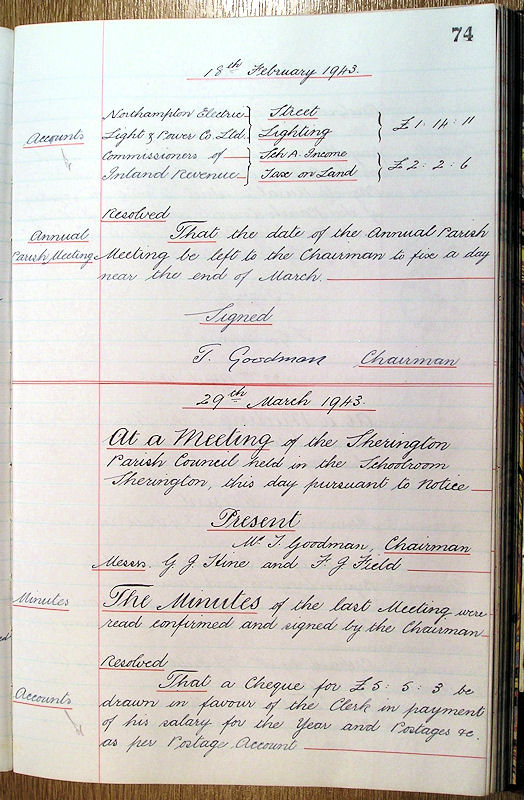 74
18th February 1943.
Accounts
Northampton Electric } Street
Light & Power Co. Ltd } Lighting } £1 : 14 : 11
Commissioners of } Sch A. Income
Inland Revenue } Tax on Land } £2 : 2 : 6
Resolved
Annual Parish Meeting
That the date of the Annual Parish
Meeting be left to the Chairman to fix a day
near the end of March.
Signed
T. Goodman Chairman
29th March 1943.
At a Meeting of the Sherington
Parish Council held in the Schoolroom
Sherington, this day pursuant to Notice
Present
Mr T. Goodman, Chairman
Messrs. G J Hine and F J Field
Minutes
The Minutes of the last Meeting were
read confirmed and signed by the Chairman
Resolved
Accounts
That a Cheque for £5 : 5 : 3 be
drawn in favour of the Clerk in payment
of his salary for the Year and Postages &c.
as per Postage Account